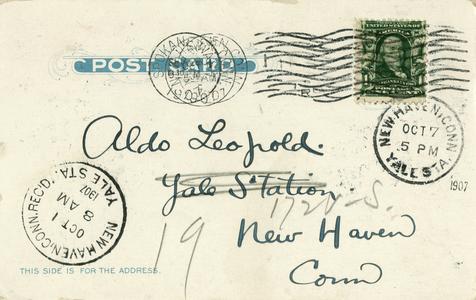 POST CARD
SPOKANE, WASH.
NEW HAVEN, CONN.
OCT 7
5 PM
YALE STA.
1907
Aldo Leopold.
Yale Station.
1728-S.
19
New Haven
Conn
NEW HAVEN, CONN. REC'D.
OCT 1
8 AM
1907
YALE STA.
THIS SIDE IS FOR THE ADDRESS.